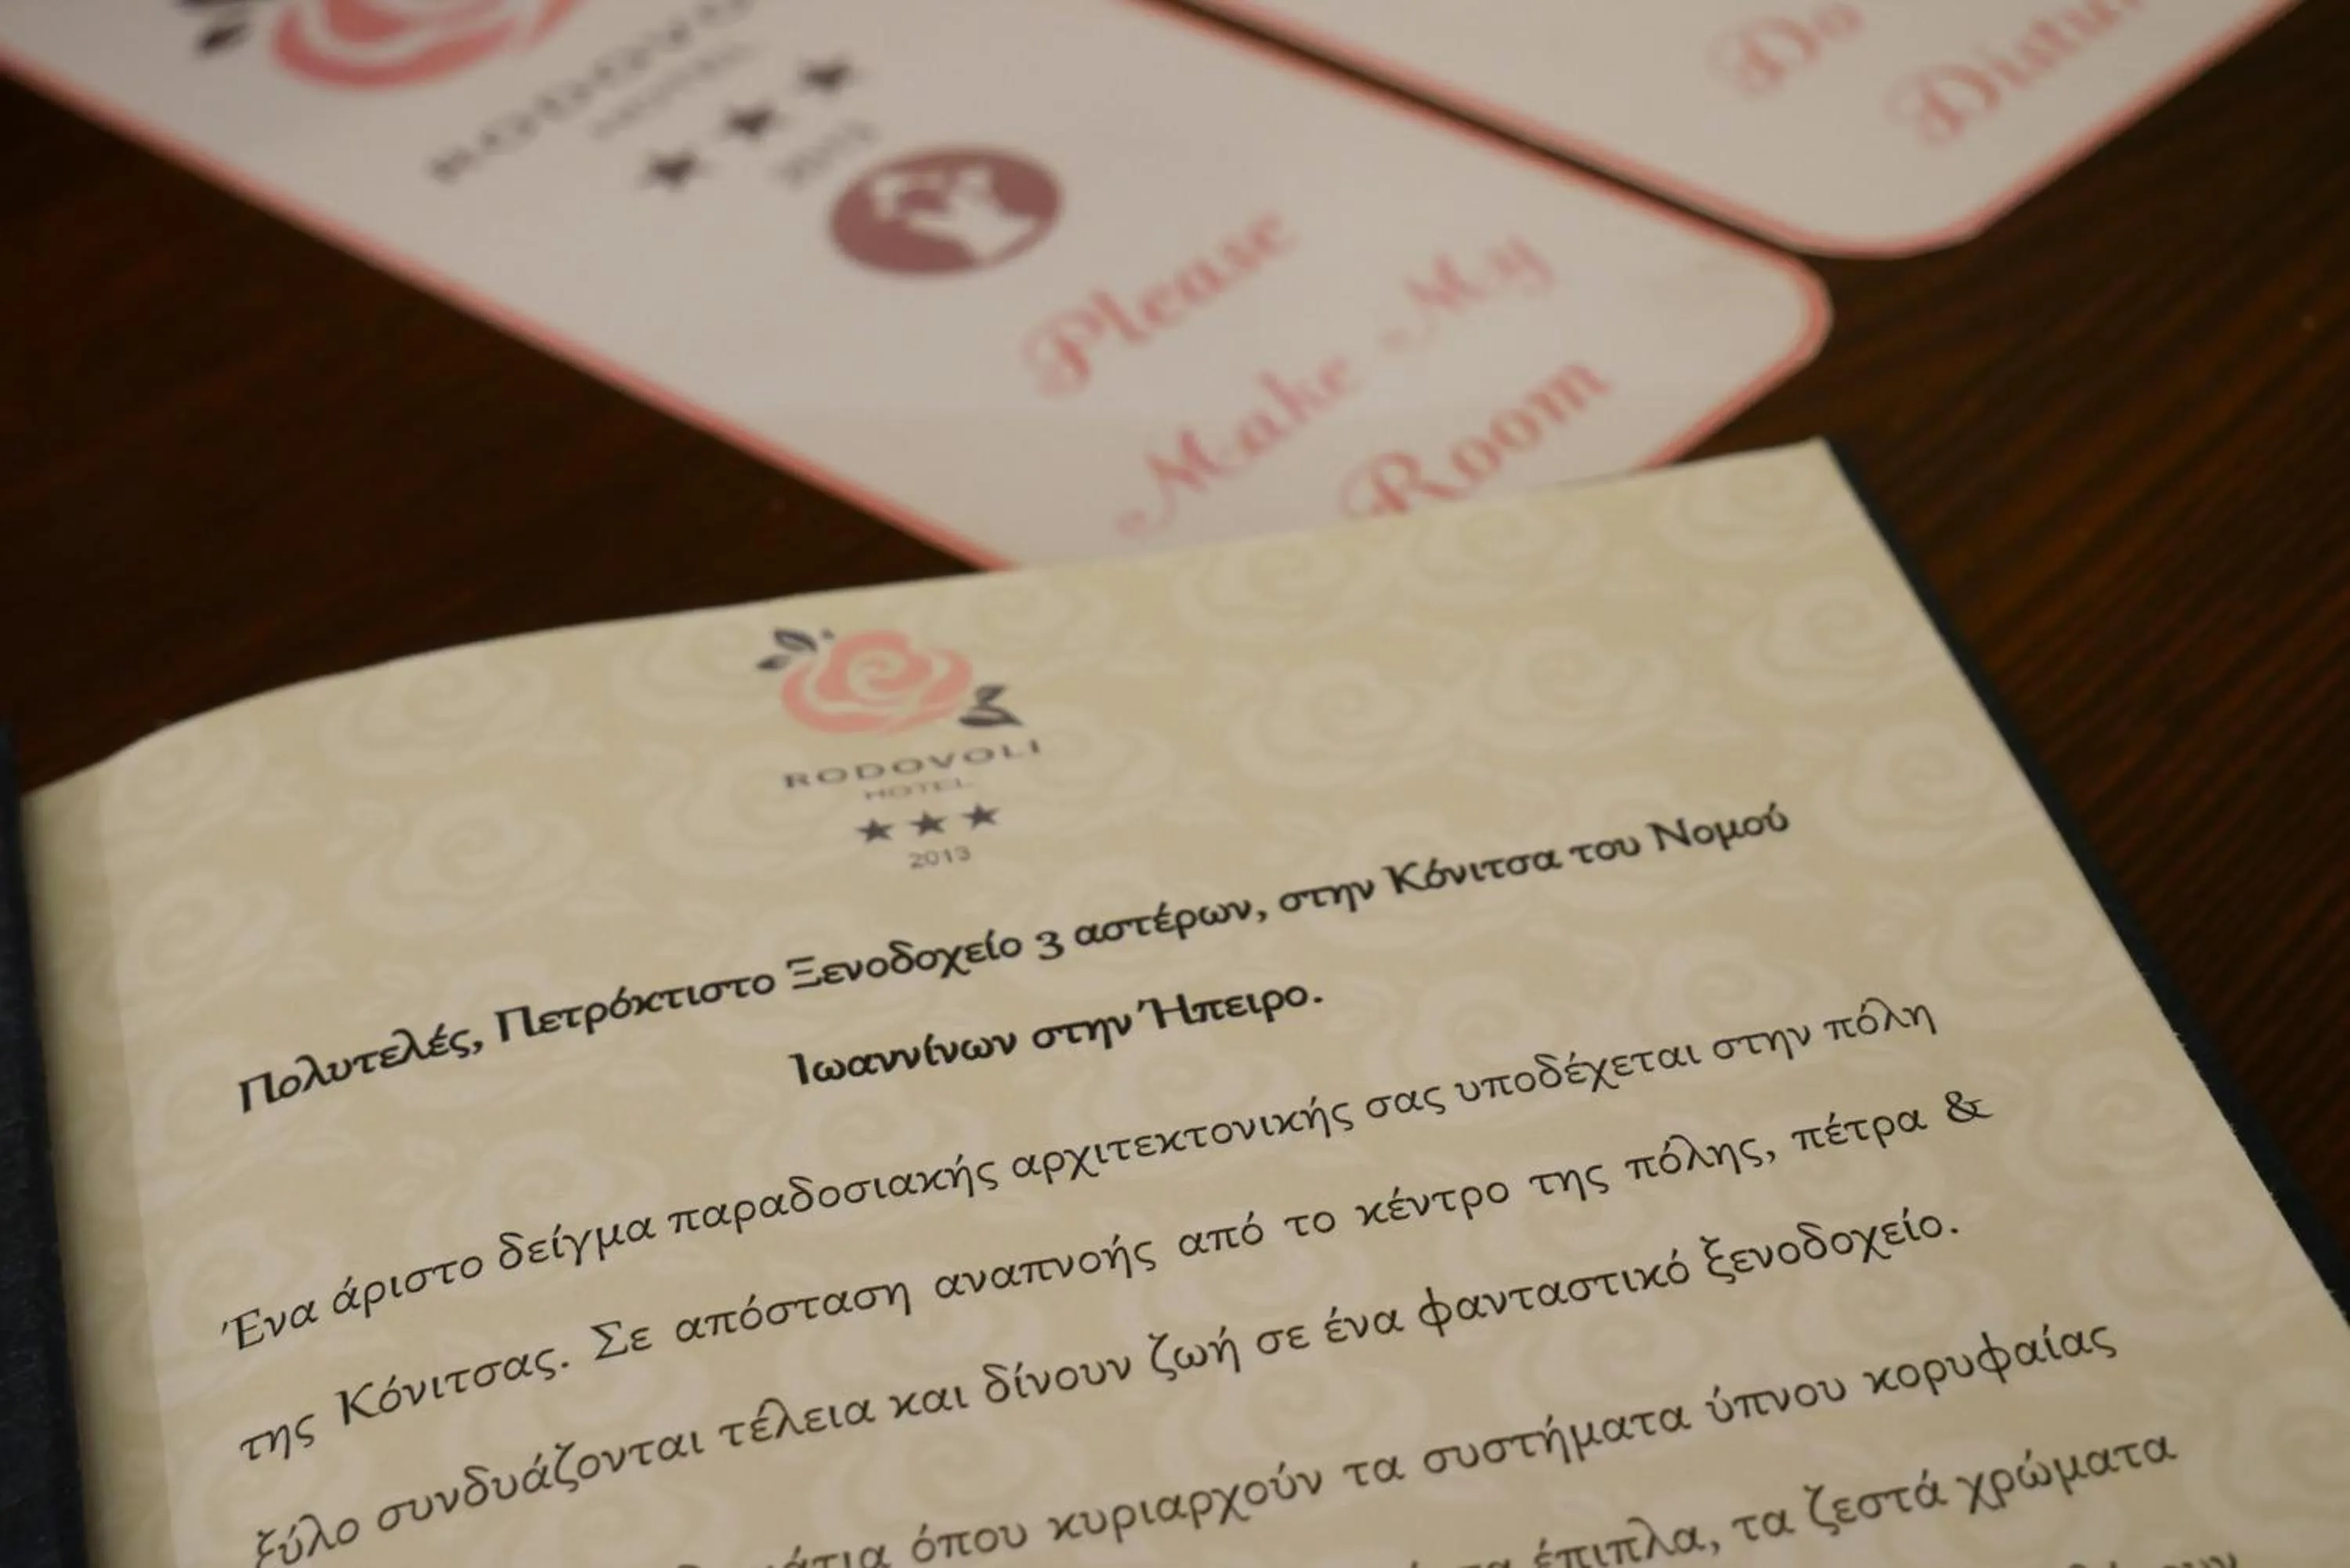 RODOVO
HOTEL
2013
Please
Make My
Room
Do
RODOVOLI
HOTEL
2013
Πολυτελές, Πετρόκτιστο Ξενοδοχείο 3 αστέρων, στην Κόνιτσα του Νομού
Ιωαννίνων στην Ήπειρο.
Ένα άριστο δείγμα παραδοσιακής αρχιτεκτονικής σας υποδέχεται στην πόλη
της Κόνιτσας. Σε απόσταση αναπνοής από το κέντρο της πόλης, πέτρα &
ξύλο συνδυάζονται τέλεια και δίνουν ζωή σε ένα φανταστικό ξενοδοχείο.
όπου κυριαρχούν τα συστήματα ύπνου κορυφαίας
έπιπλα, τα ζεστά χρώματα